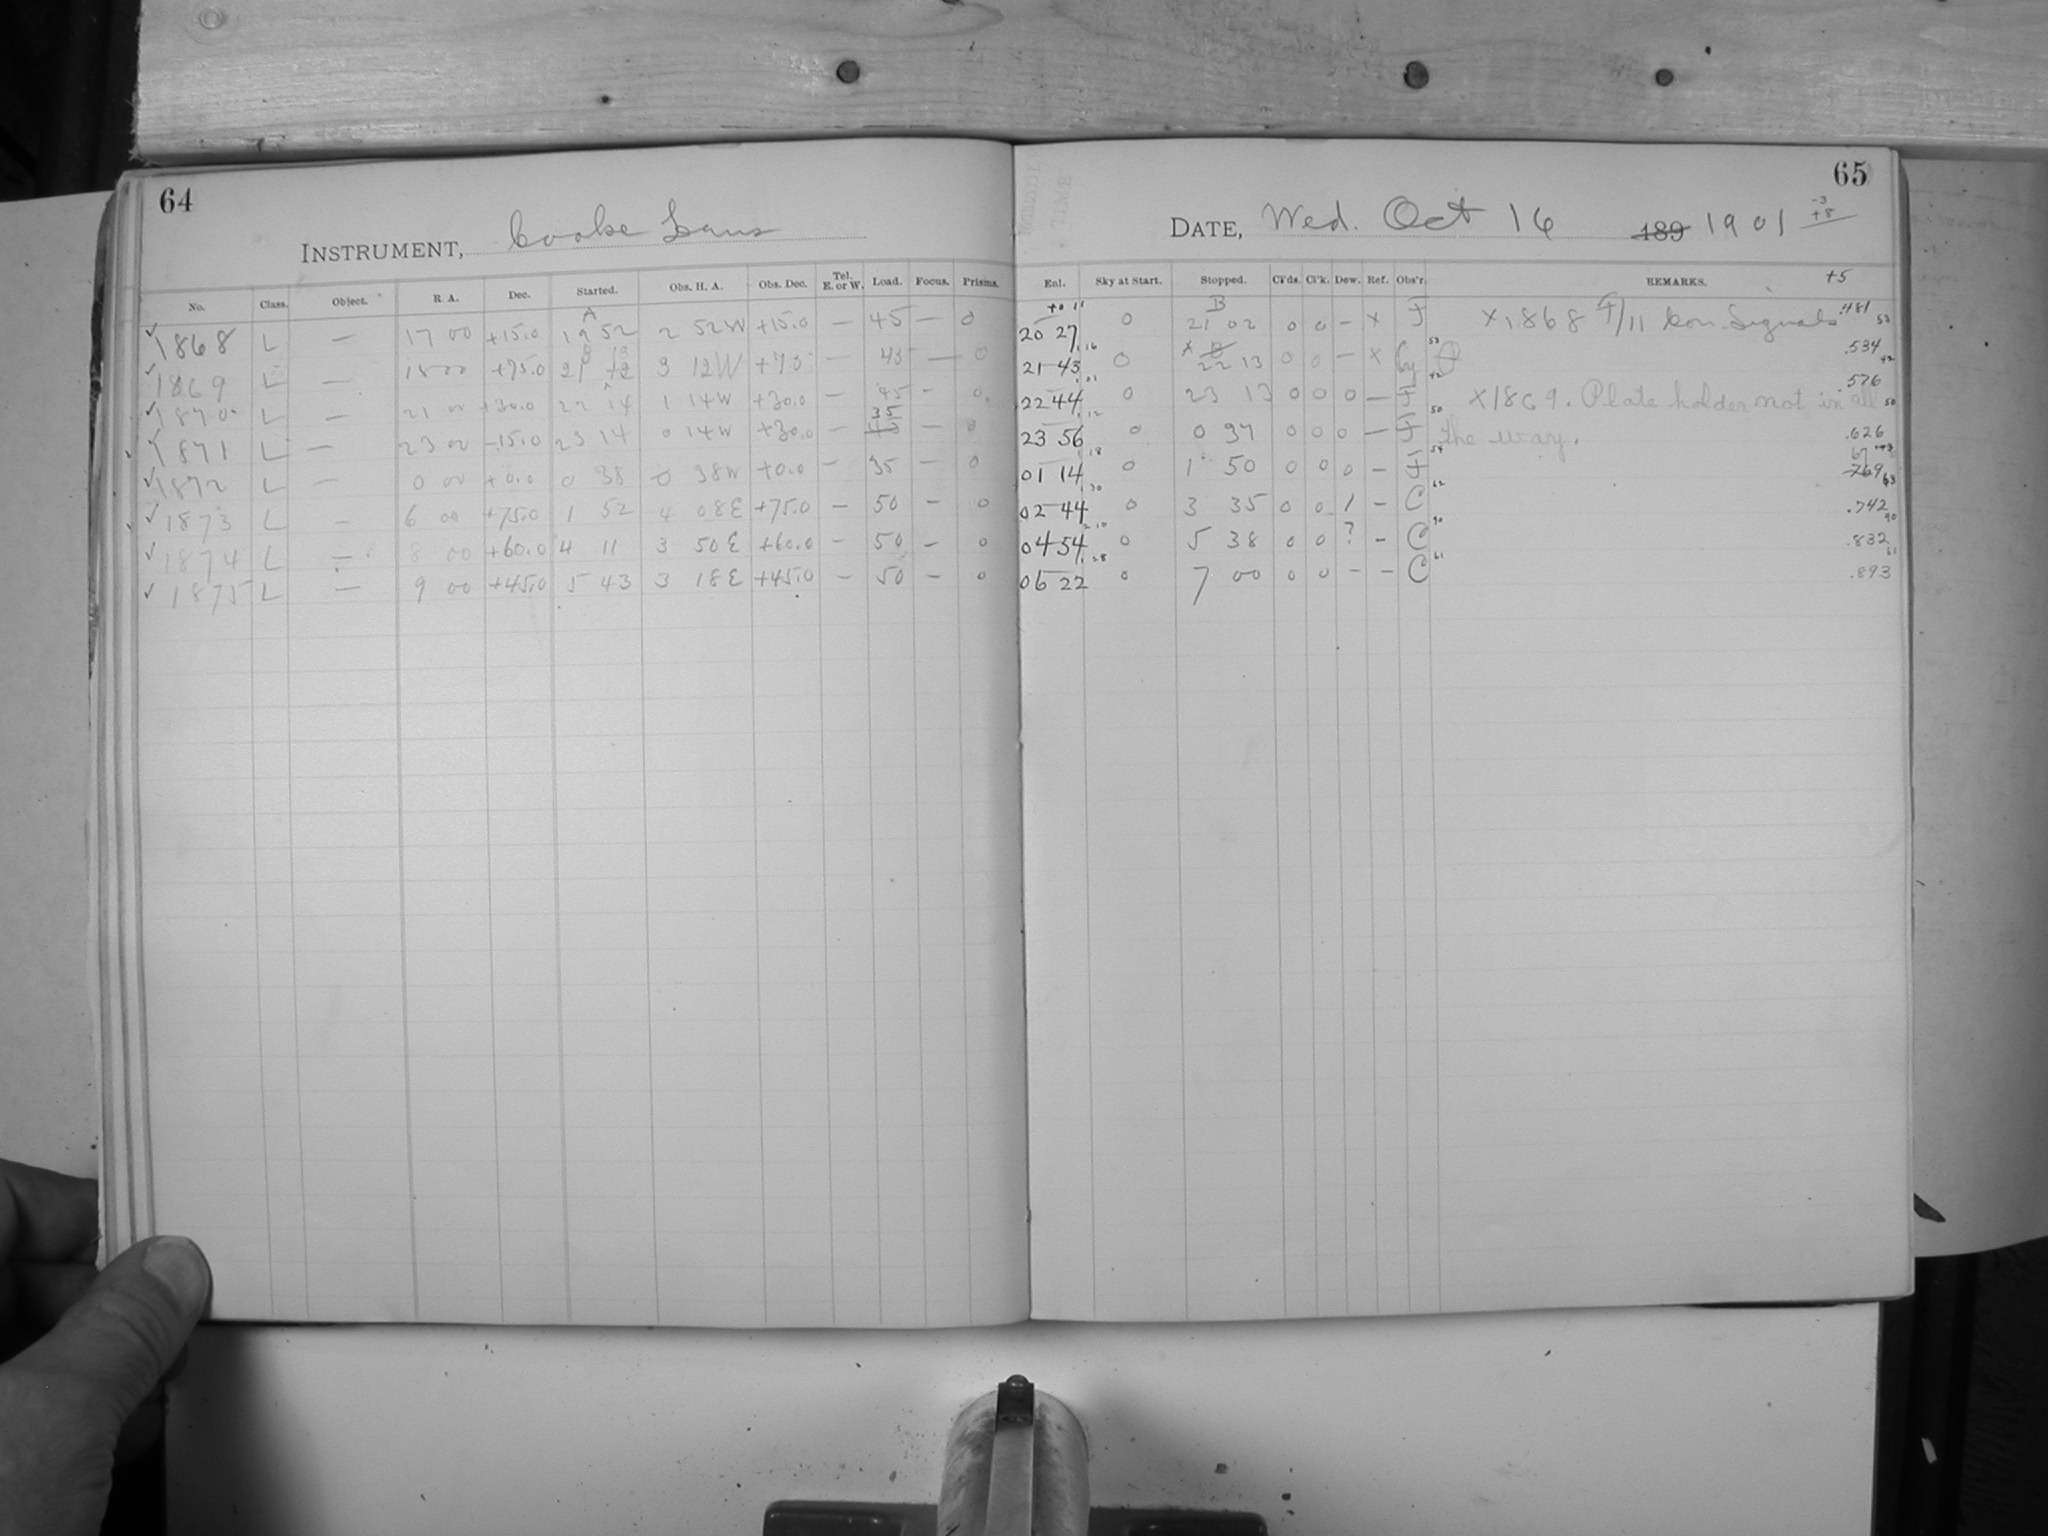 64
INSTRUMENT, Cooke Lens
No. Class. Object. R. A. Dec. Started. Obs. H. A. Obs. Dec. Tel. E. or W. Load. Focus. Prisms.
A
✓ 1868 L — 17 00 +15.0 19 52 2 52W +15.0 — 45 — 0
✓ 1869 L — 18 00 +75.0 21 12 3 12W +75 — 45 — 0
✓ 1870 L — 21 00 +30.0 22 14 1 14W +30.0 — 45 — 0
35
✓ 1871 L — 23 00 -15.0 23 14 0 14W +30.0 — — 0
✓ 1872 L — 0 00 +0.0 0 38 0 38W +0.0 — 35 — 0
✓ 1873 L — 6 00 +75.0 1 52 4 08E +75.0 — 50 — 0
✓ 1874 L — 8 00 +60.0 4 11 3 50E +60.0 — 50 — 0
✓ 1875 L — 9 00 +45.0 5 43 3 18E +45.0 — 50 — 0
65
DATE, Wed. Oct 16 189 1901 -3 +8
Enl. Sky at Start. Stopped. Cl'ds. Cl'k. Dew. Ref. Obs'r. REMARKS. +5
B
20 27 0 21 02 0 0 — x F x1868 F/11 Signals .481 53
21 43 0 22 13 0 0 — x .534 42
22 44 0 23 13 0 0 0 — F x1869. Plate holder not in all .576 50
23 56 0 0 37 0 0 0 — F the way. .626
01 14 0 1 50 0 0 0 — F 769 63
02 44 0 3 35 0 0 1 — C .742 90
04 54 0 5 38 0 0 ? — C .832 61
06 22 0 7 00 0 0 — — C .893